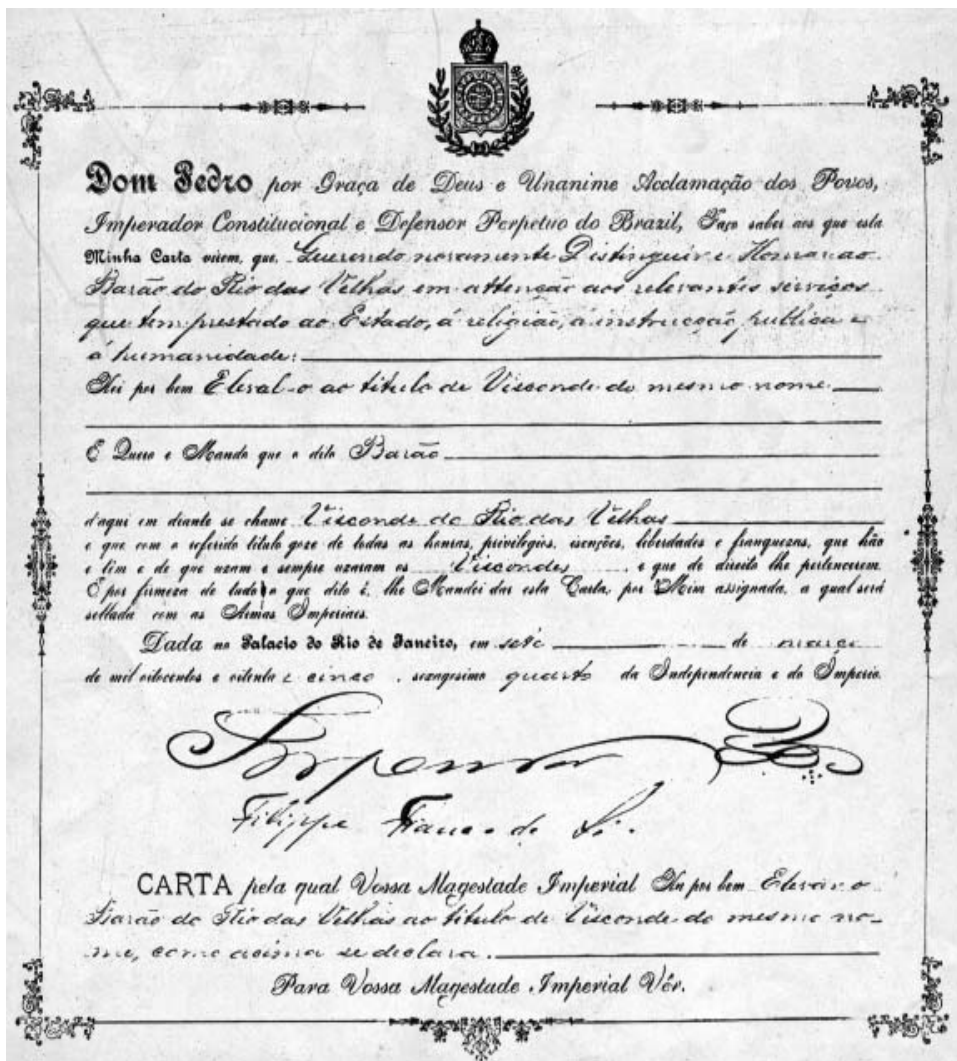 Dom Pedro por Graça de Deus e Unanime Acclamação dos Povos,
Imperador Constitucional e Defensor Perpetuo do Brazil, Faço saber aos que esta
Minha Carta virem, que, Querendo novamente Distinguir e Honrar ao
Barão do Rio das Velhas em attenção aos relevantes serviços
que tem prestado ao Estado, á religião, á instrucção publica e
á humanidade:
Hei por bem Eleval-o ao titulo de Visconde do mesmo nome
E Quero e Mando que o dito Barão
d'aqui em deante se chame Visconde do Rio das Velhas
e que com o referido titulo goze de todas as honras, privilegios, isenções, liberdades e franquezas, que hão
e têm e de que uzam e sempre uzaram os Viscondes e que de direito lhe pertencerem.
E por firmeza de tudo o que dito é, lhe Mandei dar esta Carta, por Mim assignada, a qual será
sellada com as Armas Imperiaes.
Dada no Palacio do Rio de Janeiro, em sete de março
de mil oitocentos e oitenta e cinco, sexagesimo quarto da Independencia e do Imperio.
Imperador
Filippe Franco de Sá.
CARTA pela qual Vossa Magestade Imperial Ha por bem Elevar o
Barão do Rio das Velhas ao titulo de Visconde do mesmo no-
me, como acima se declara.
Para Vossa Magestade Imperial Vêr.